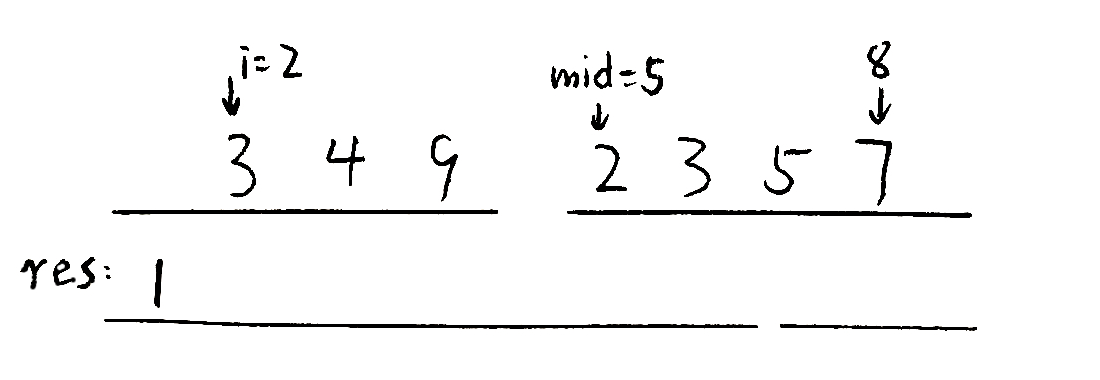 i=2 mid=5 8
3 4 9 2 3 5 7
res: 1